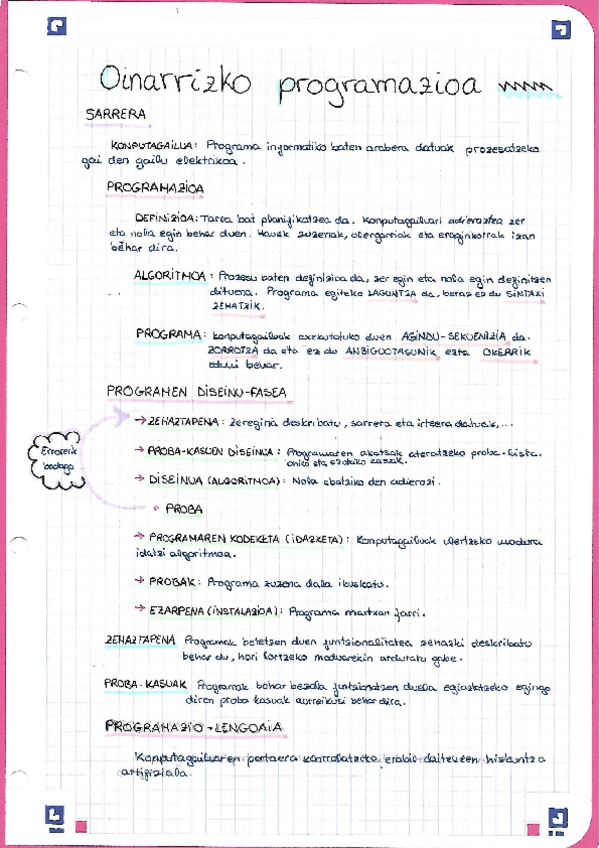 Oinarrizko programazioa
SARRERA
KONPUTAGAILUA: Programa informatiko baten arabera datuak prozesatzeko
gai den gailu elektrikoa.
PROGRAMAZIOA
DEFINIZIOA: Tarea bat planifikatzea da. Konputagailuari adieraztea zer
eta nola egin behar duen. Hauek zuzenak, ulergarriak eta eraginkorrak izan
behar dira.
ALGORITMOA: Prozesu baten definizioa da, zer egin eta nola egin definitzen
dituena. Programa egiteko LAGUNTZA da, beraz ez du SINTAXI
ZEHATZIK.
PROGRAMA: Konputagailuak exekutatuko duen AGINDU-SEKUENTZIA da.
ZORROTZA da eta ez du ANBIGUOTASUNIK, ezta OKERRIK
eduki behar.
PROGRAMEN DISEINU-FASEA
→ ZEHAZTAPENA: zeregina deskribatu, sarrera eta irteera datuak,...
→ PROBA-KASUEN DISEINUA: Programaren akatsak ateratzeko proba-lista.
ohiko eta ezohiko kasuak.
Errorerik
badago
→ DISEINUA (ALGORITMOA): Nola ebatziko den adierazi.
PROBA
→ PROGRAMAREN KODEKETA (IDAZKETA): Konputagailuak ulertzeko moduan
idatzi algoritmoa.
→ PROBAK: Programa zuzena dela ikuskatu.
→ EZARPENA (INSTALAZIOA): Programa martxan jarri.
ZEHAZTAPENA Programak betetzen duen funtzionalitatea zehazki deskribatu
behar du, hori lortzeko moduarekin arduratu gabe.
PROBA-KASUAK Programak behar bezala funtzionatzen duela egiaztatzeko egingo
diren proba kasuak aurreikusi behar dira.
PROGRAMAZIO-LENGOAIA
Konputagailuaren portaera kontrolatzeko erabil daitekeen hizkuntza
artifiziala.